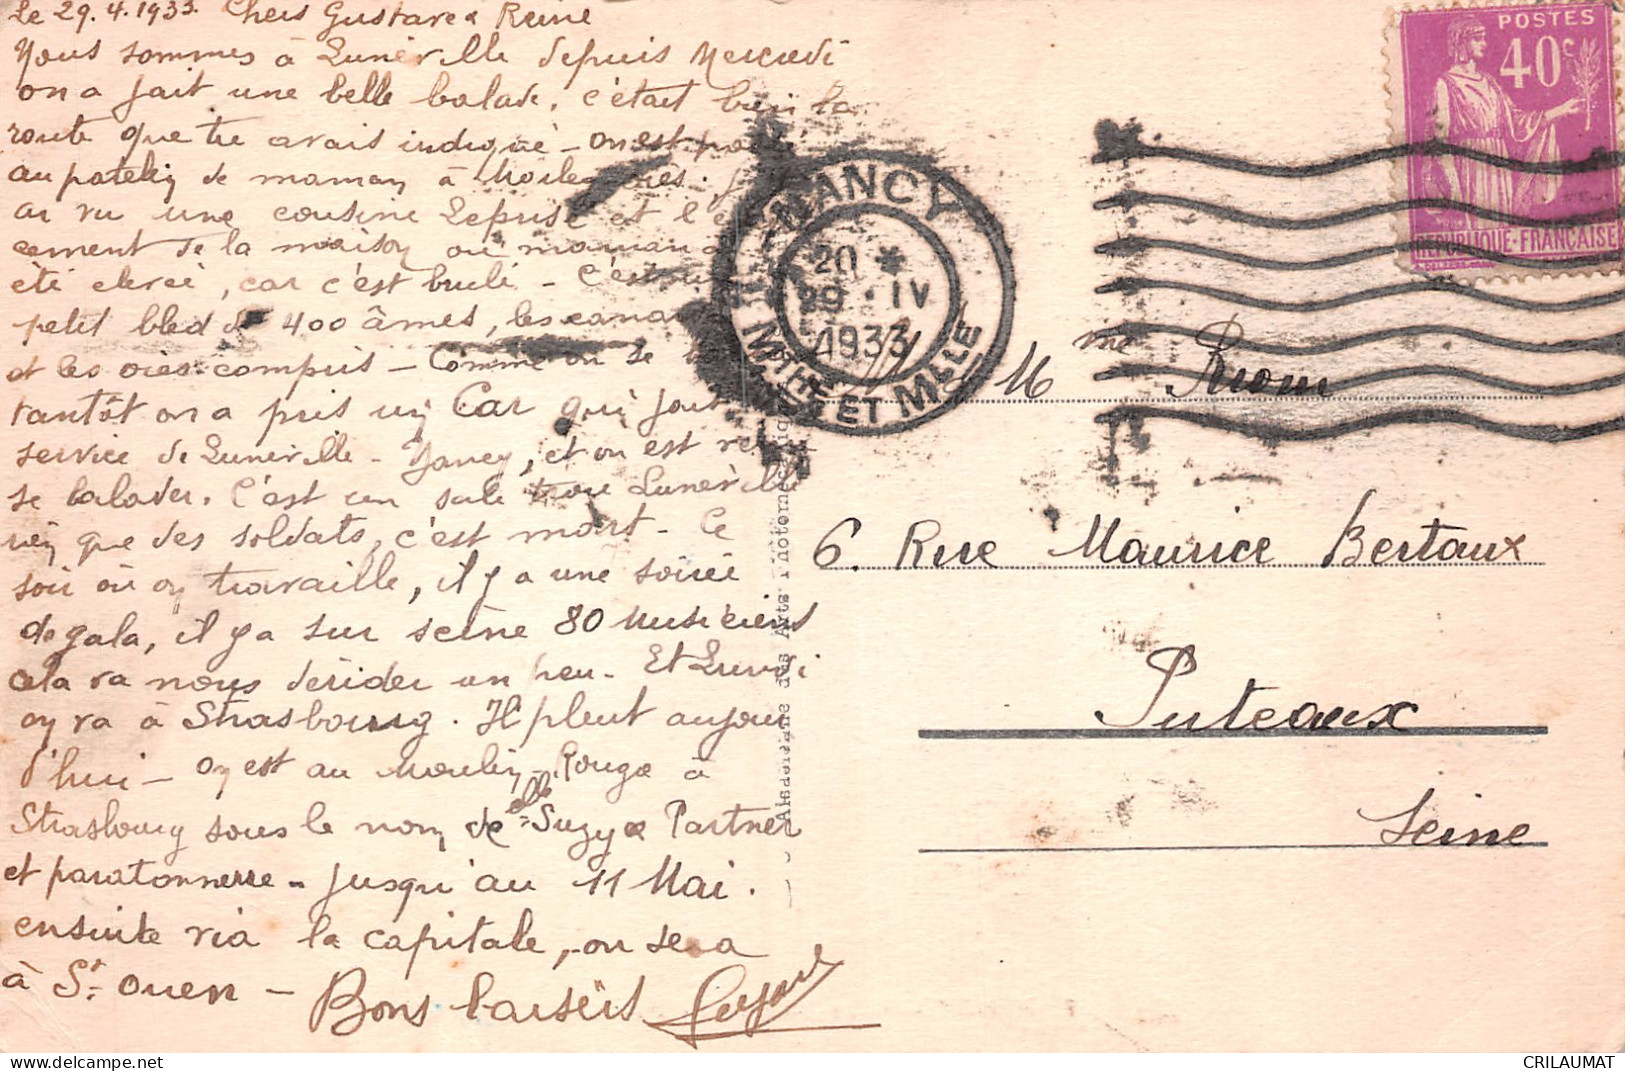 Le 29.4.1933. Chers Gustave & Reine
Nous sommes à Lunéville depuis Mercredi
on a fait une belle balade, c'était bien la
route que tu avais indiqué - on est
au patelin de maman à
ai vu une cousine Leprise et l'
cement de la maison où maman a
été elevée, car c'est brulé - C'est
petit bled de 400 âmes, les
et les oies compris - Comme on se
tantôt on a pris un Car qui fait
service de Lunéville - Nancy, et on est
se balader. C'est un sale trou Lunéville
rien que des soldats, c'est mort - Ce
soir où on travaille, il y a une soirée
de gala, il y a sur scène 80 Musiciens
cela va nous dérider un peu - Et Lundi
on va à Strasbourg. Il pleut aujour
d'hui - on est au Moulin-Rouge à
Strasbourg sous le nom de elle Suzy & Partner
et paratonnerre - jusqu'au 11 Mai.
ensuite via la capitale, - on sera
à St. Ouen - Bons baisers
POSTES
40c
REPUBLIQUE-FRANCAISE
NANCY
20 *
29 · IV
1933
MTHE ET MLLE
M me Riom
6. Rue Maurice Bertaux
Puteaux
Seine
CRILAUMAT